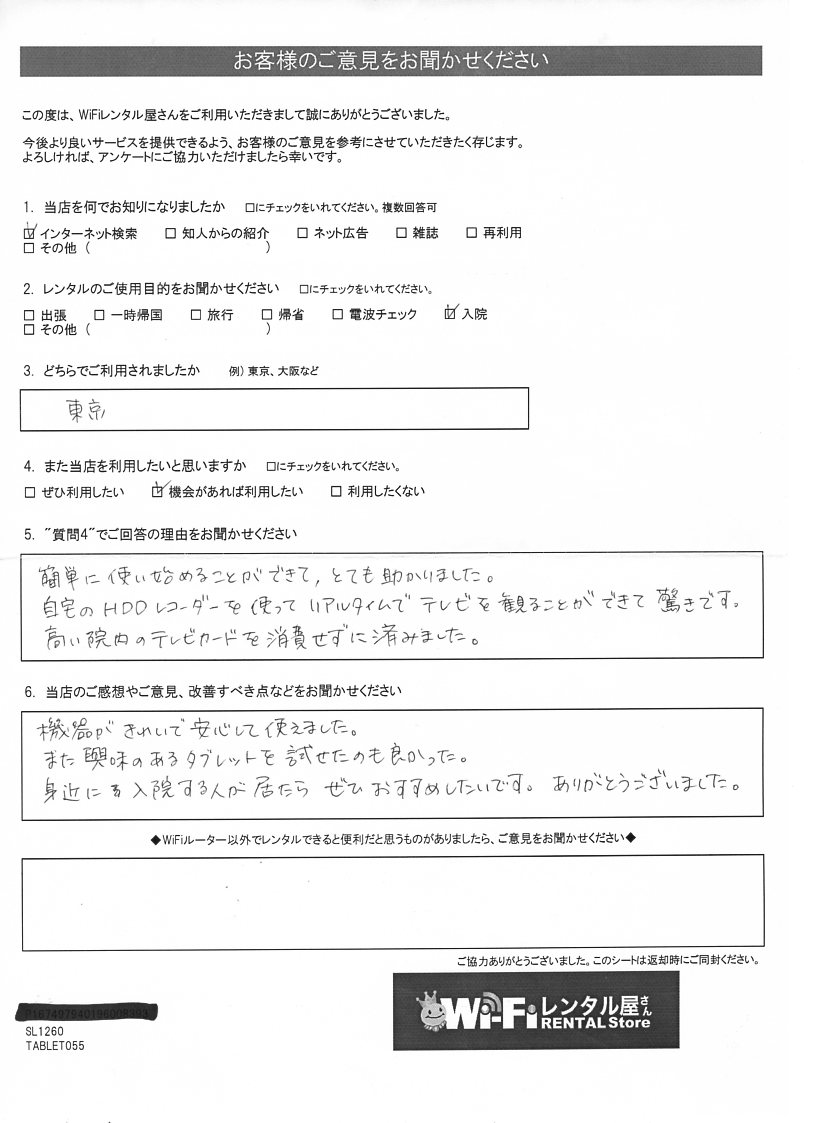 お客様のご意見をお聞かせください
この度は、WiFiレンタル屋さんをご利用いただきまして誠にありがとうございました。
今後より良いサービスを提供できるよう、お客様のご意見を参考にさせていただきたく存じます。
よろしければ、アンケートにご協力いただけましたら幸いです。
1. 当店を何でお知りになりましたか □にチェックをいれてください。複数回答可
☑ インターネット検索 □ 知人からの紹介 □ ネット広告 □ 雑誌 □ 再利用
□ その他 ( )
2. レンタルのご使用目的をお聞かせください □にチェックをいれてください。
□ 出張 □ 一時帰国 □ 旅行 □ 帰省 □ 電波チェック ☑ 入院
□ その他 ( )
3. どちらでご利用されましたか 例) 東京、大阪など
東京
4. また当店を利用したいと思いますか □にチェックをいれてください。
□ ぜひ利用したい ☑ 機会があれば利用したい □ 利用したくない
5. "質問4"でご回答の理由をお聞かせください
簡単に使い始めることができて, とても助かりました。
自宅のHDDレコーダーを使ってリアルタイムでテレビを観ることができて驚きです。
高い院内のテレビカードを消費せずに済みました。
6. 当店のご感想やご意見、改善すべき点などをお聞かせください
機器がきれいで安心して使えました。
また興味のあるタブレットを試せたのも良かった。
身近に入院する人が居たらぜひおすすめしたいです。ありがとうございました。
◆WiFiルーター以外でレンタルできると便利だと思うものがありましたら、ご意見をお聞かせください◆
ご協力ありがとうございました。このシートは返却時にご同封ください。
Wi-Fiレンタル屋さん
RENTAL Store
SL1260
TABLET055